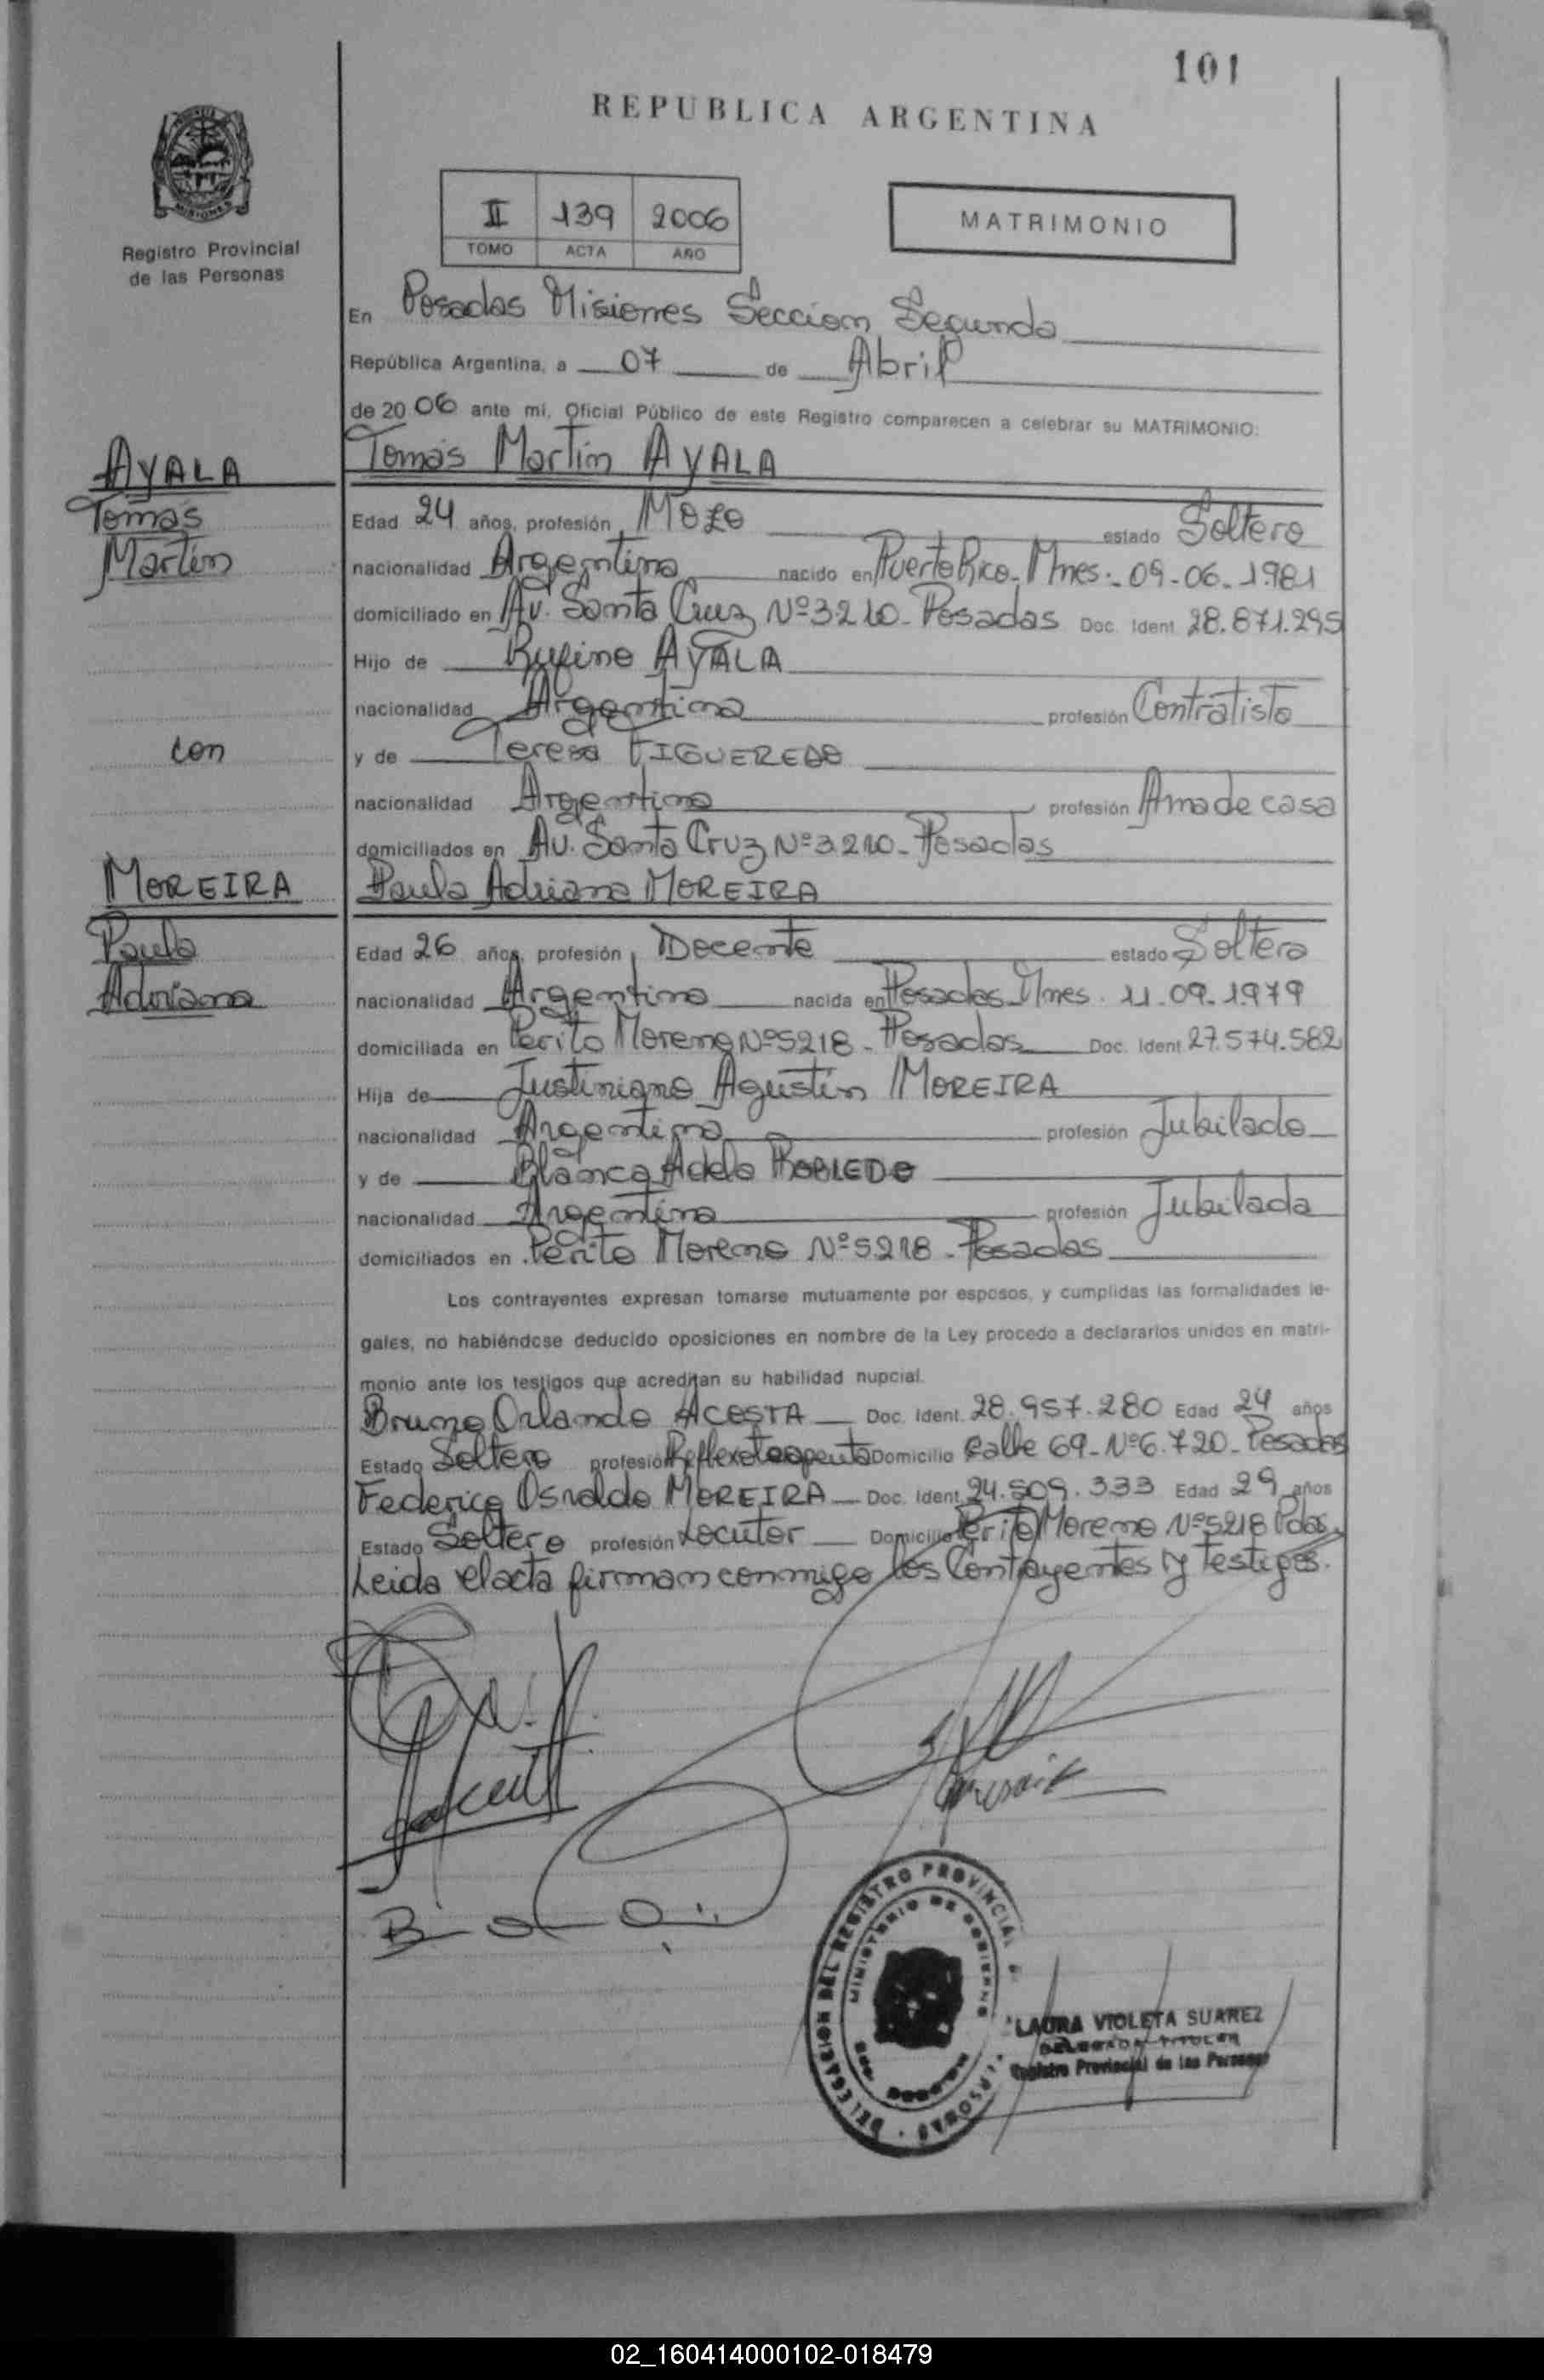 101
REPUBLICA ARGENTINA
MISIONES
Registro Provincial
de las Personas
II 139 2006
TOMO ACTA AÑO
MATRIMONIO
En Posadas Misiones Seccion Segunda
República Argentina, a 07 de Abril
de 2006 ante mí, Oficial Público de este Registro comparecen a celebrar su MATRIMONIO:
AYALA
Tomás
Martín
con
MOREIRA
Paula
Adriana
Tomás Martín AYALA
Edad 24 años, profesión Mozo estado Soltero
nacionalidad Argentina nacido en Puerto Rico. Mnes.- 09-06-1981
domiciliado en Av. Santa Cruz Nº 3210- Posadas Doc. Ident 28.871.295
Hijo de Rufino AYALA
nacionalidad Argentina profesión Contratista
y de Teresa FIGUEREDO
nacionalidad Argentina profesión Ama de casa
domiciliados en Av. Santa Cruz Nº 3210- Posadas
Paula Adriana MOREIRA
Edad 26 años, profesión Docente estado Soltera
nacionalidad Argentina nacida en Posadas Mnes. 11-09-1979
domiciliada en Perito Moreno Nº 5218- Posadas Doc. Ident. 27.574.582
Hija de Justiniano Agustín MOREIRA
nacionalidad Argentina profesión Jubilado
y de Blanca Adela ROBLEDO
nacionalidad Argentina profesión Jubilada
domiciliados en Perito Moreno Nº 5218- Posadas
Los contrayentes expresan tomarse mutuamente por esposos, y cumplidas las formalidades le-
gales, no habiéndose deducido oposiciones en nombre de la Ley procedo a declararlos unidos en matri-
monio ante los testigos que acreditan su habilidad nupcial.
Bruno Orlando ACOSTA Doc. Ident. 28.957.280 Edad 24 años
Estado Soltero profesión Reflexoterapeuta Domicilio Calle 69- Nº 6.720- Posadas
Federico Osvaldo MOREIRA Doc. Ident. 24.509.333 Edad 29 años
Estado Soltero profesión Locutor Domicilio Perito Moreno Nº 5218 Pdas.
Leida el acta firman conmigo los Contayentes y Testigos.
DELEGACION DEL REGISTRO PROVINCIAL
MINISTERIO DE GOBIERNO
LAURA VIOLETA SUAREZ
DELEGADA TITULAR
Registro Provincial de las Personas
02_160414000102-018479